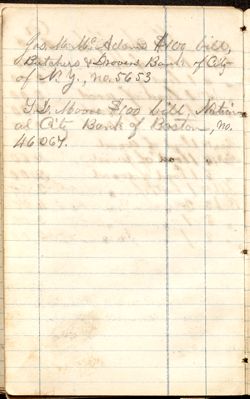 Jas M McAdams $100 bill,
Butchers & Drovers Bank of City
of N.Y., no. 5653
Moore $100 bill, Nation
al City Bank of Boston, no.
46067.